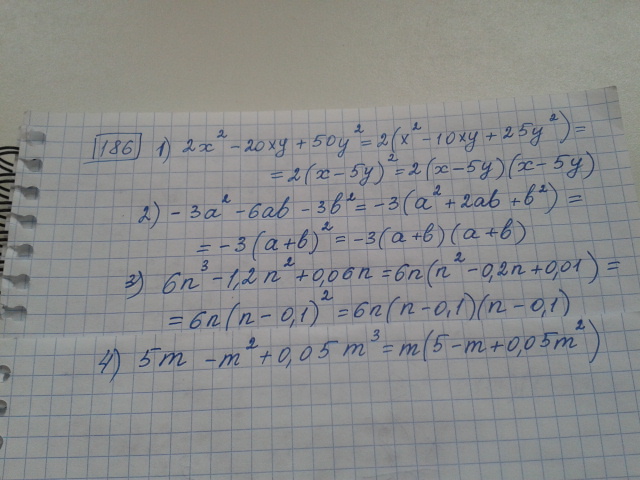 186 1) 2x² - 20xy + 50y² = 2(x² - 10xy + 25y²) =
= 2(x - 5y)² = 2(x - 5y)(x - 5y)
2) - 3a² - 6ab - 3b² = -3(a² + 2ab + b²) =
= -3(a+b)² = -3(a+b)(a+b)
3) 6n³ - 1,2n² + 0,06n = 6n(n² - 0,2n + 0,01) =
= 6n(n - 0,1)² = 6n(n - 0,1)(n - 0,1)
4) 5m - m² + 0,05m³ = m(5 - m + 0,05m²)